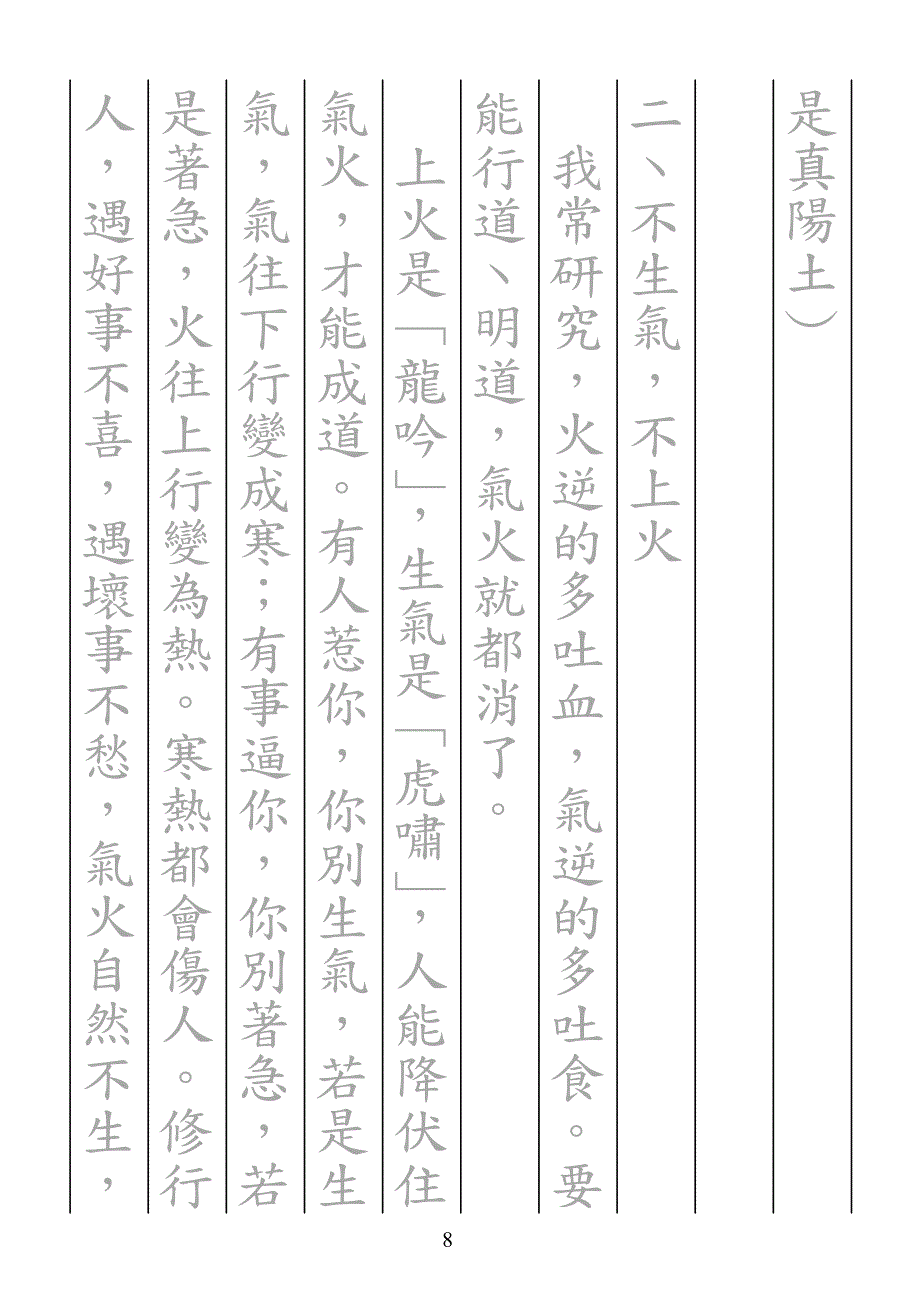 是真陽土）
二、不生氣，不上火
我常研究，火逆的多吐血，氣逆的多吐食。要
能行道、明道，氣火就都消了。
上火是「龍吟」，生氣是「虎嘯」，人能降伏住
氣火，才能成道。有人惹你，你別生氣，若是生
氣，氣往下行變成寒；有事逼你，你別著急，若
是著急，火往上行變為熱。寒熱都會傷人。修行
人，遇好事不喜，遇壞事不愁，氣火自然不生，
8